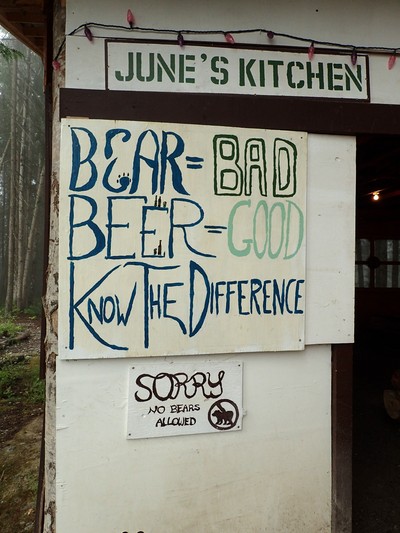 JUNE'S KITCHEN
BEAR = BAD
BEER = GOOD
KNOW THE DIFFERENCE
SORRY
NO BEARS
ALLOWED